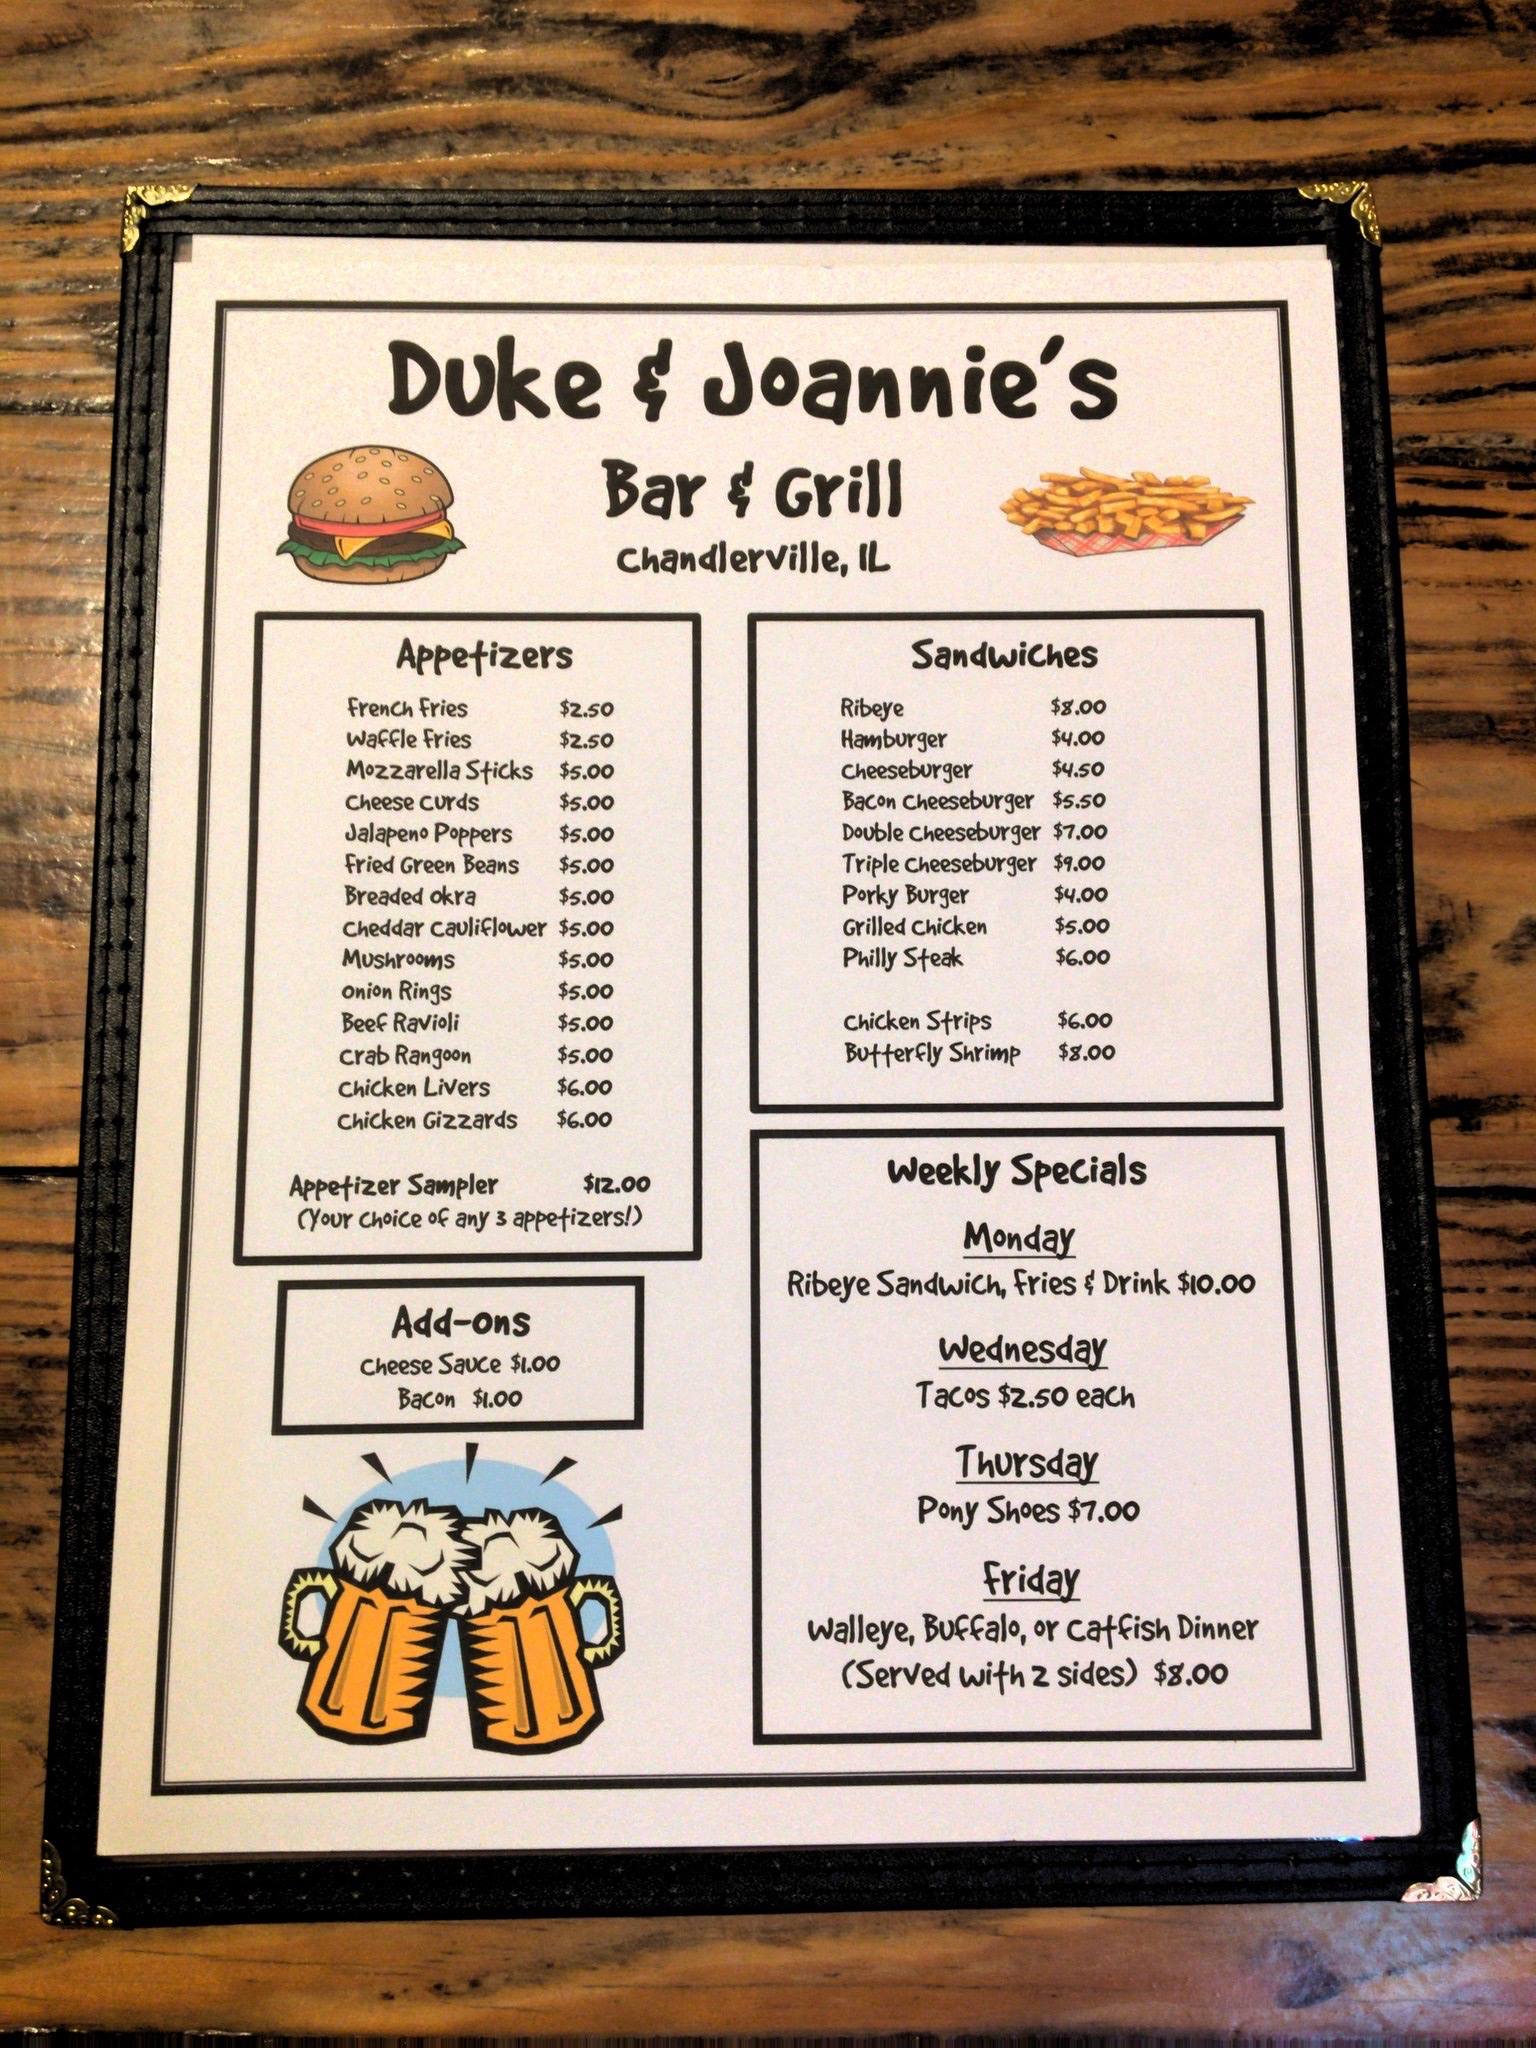 Duke & Joannie's
Bar & Grill
Chandlerville, IL
Appetizers
French Fries $2.50
Waffle Fries $2.50
Mozzarella Sticks $5.00
Cheese Curds $5.00
Jalapeno Poppers $5.00
Fried Green Beans $5.00
Breaded Okra $5.00
Cheddar Cauliflower $5.00
Mushrooms $5.00
Onion Rings $5.00
Beef Ravioli $5.00
Crab Rangoon $5.00
Chicken Livers $6.00
Chicken Gizzards $6.00
Appetizer Sampler $12.00
(Your choice of any 3 appetizers!)
Add-ons
Cheese Sauce $1.00
Bacon $1.00
Sandwiches
Ribeye $8.00
Hamburger $4.00
Cheeseburger $4.50
Bacon Cheeseburger $5.50
Double Cheeseburger $7.00
Triple Cheeseburger $9.00
Porky Burger $4.00
Grilled Chicken $5.00
Philly Steak $6.00
Chicken Strips $6.00
Butterfly Shrimp $8.00
Weekly Specials
Monday
Ribeye Sandwich, Fries & Drink $10.00
Wednesday
Tacos $2.50 each
Thursday
Pony Shoes $7.00
Friday
Walleye, Buffalo, or Catfish Dinner
(Served with 2 sides) $8.00